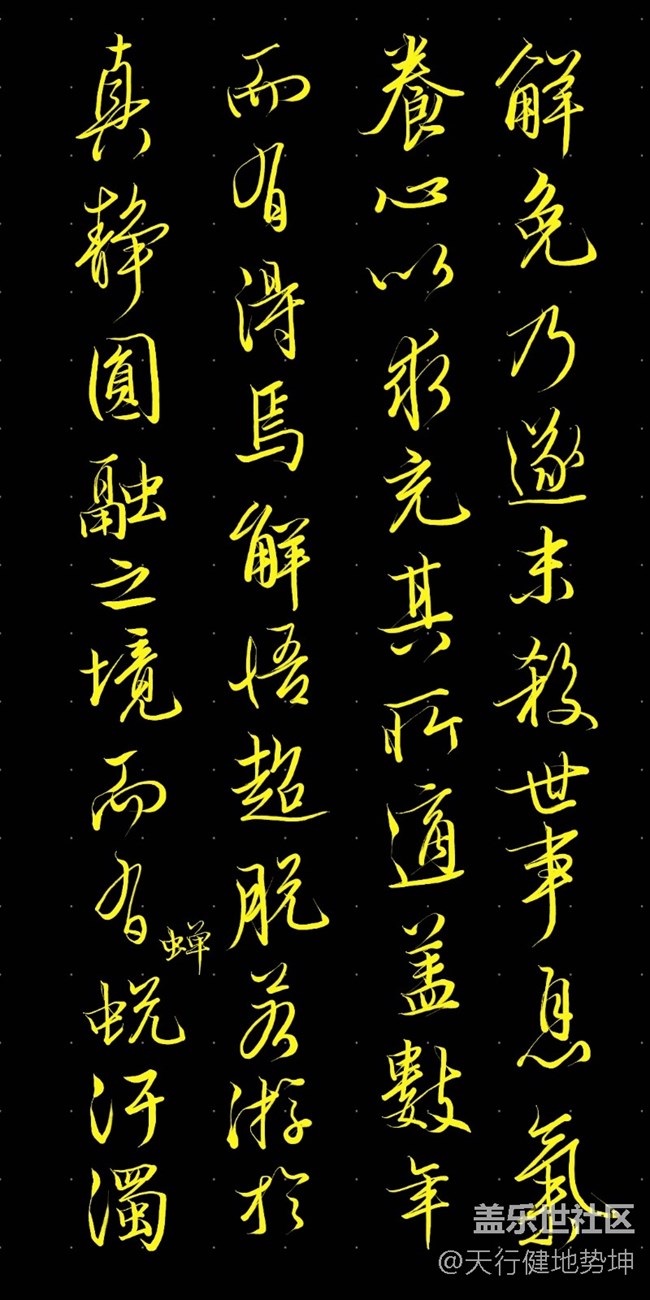 解免乃遂未殺世事息氣
養心以求充其所適蓋數年
而有得焉解悟超脱若游於
真静圓融之境而有蜕汙濁
蝉
盖乐世社区
@天行健地势坤